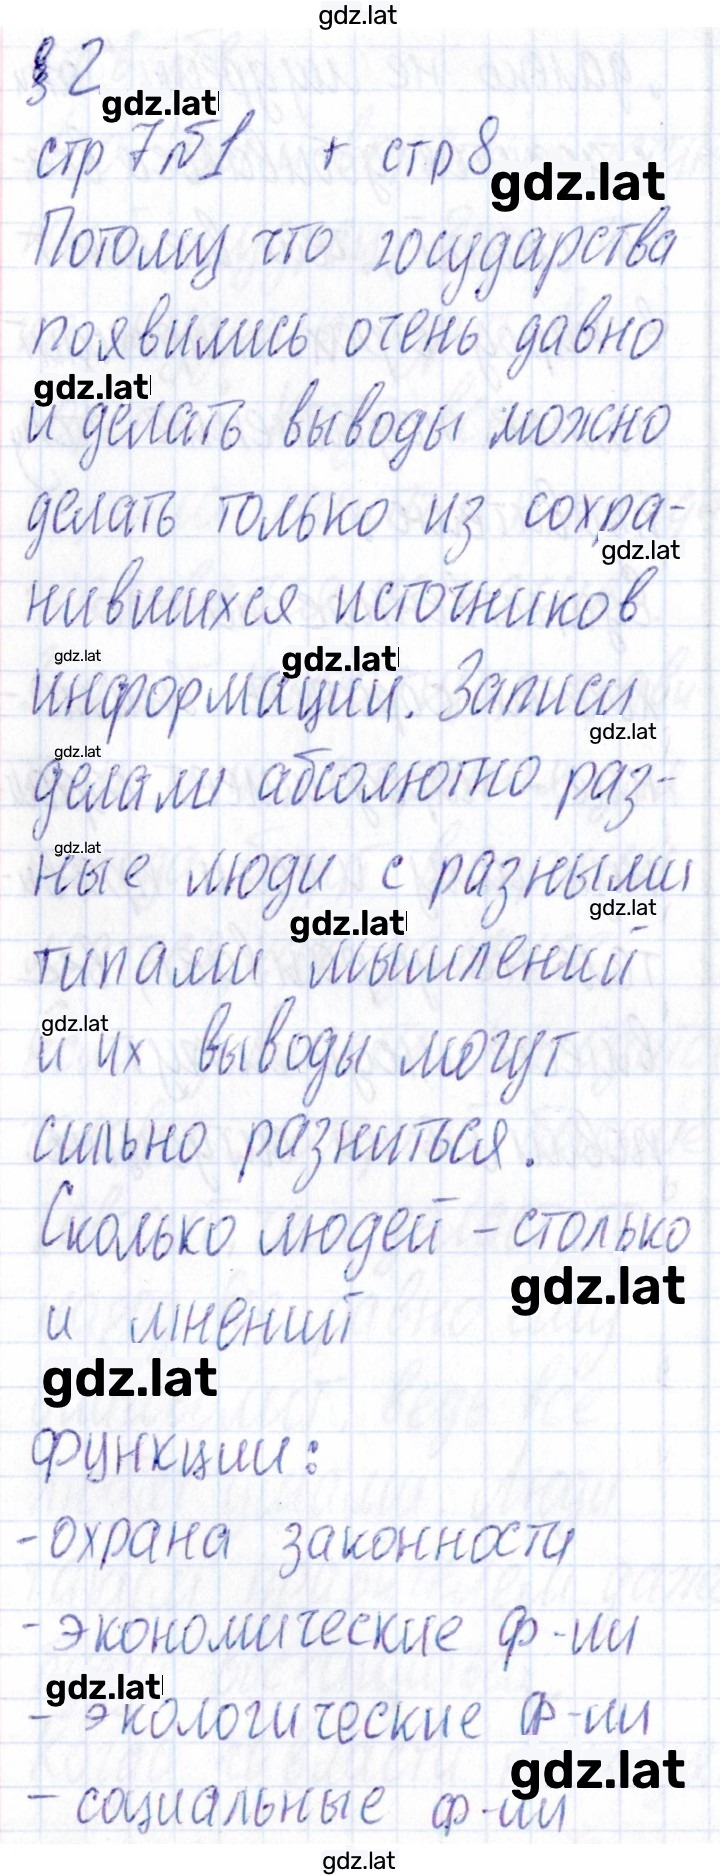 gdz.lat
§ 2
gdz.lat
стр 7 №1 + стр 8
gdz.lat
Потому что государства
появились очень давно
gdz.lat
и делать выводы можно
делать только из сохра-
gdz.lat
нившихся источников
gdz.lat
gdz.lat
информации. Записи
gdz.lat
gdz.lat
делали абсолютно раз-
gdz.lat
ные люди с разными
gdz.lat
gdz.lat
типами мышлений
gdz.lat
и их выводы могут
сильно разниться.
Сколько людей - столько
gdz.lat
и мнений
gdz.lat
функции:
- охрана законности
- экономические ф-ии
gdz.lat
- экологические ф-ии
gdz.lat
- социальные ф-ии
gdz.lat